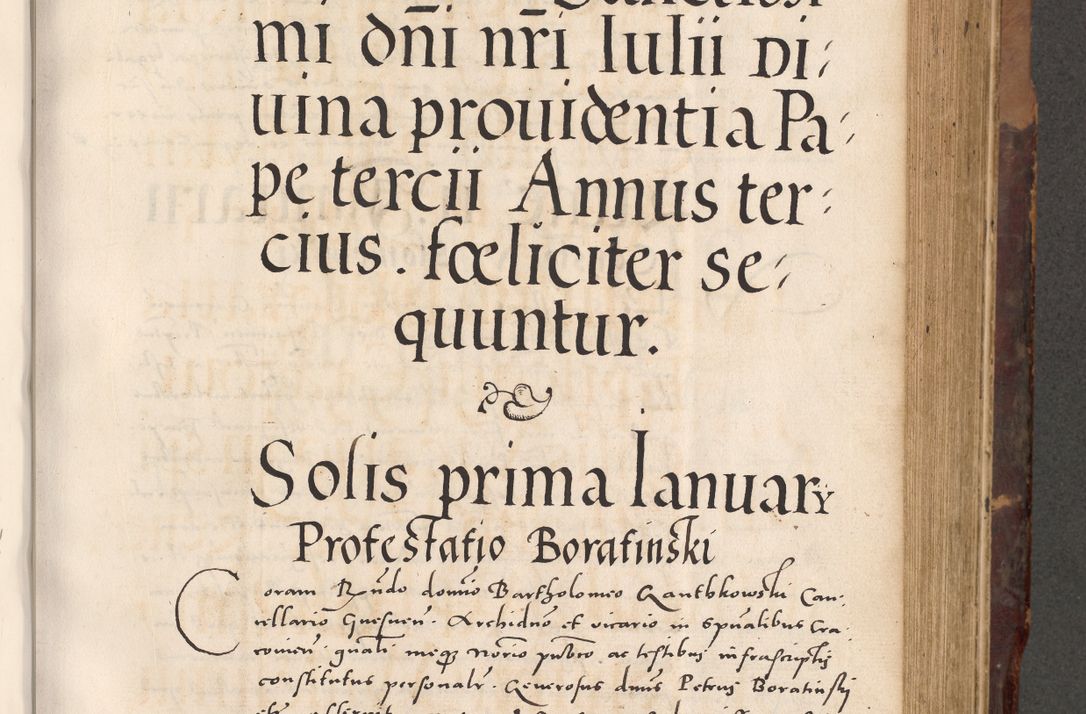 mi dn̄i nr̄i Iulii Di⸗
uina prouidentia Pa⸗
pe tercii Annus ter⸗
cius. fœliciter se⸗
quuntur.
Solis prima Ianuarÿ
Protestatio Boratinski
Coram Rn̄do domīo Bartholomeo Gantkowski Can⸗
cellario Gnesneñ. Archidn̄o et vicario in spūalibus Cra⸗
couieñ. gn̄ali meqꝫ no͞rio pub͞co ac testibus infrascriptis
constitutus personalr̄. Generosus dn̄us Petrus Boratinsky